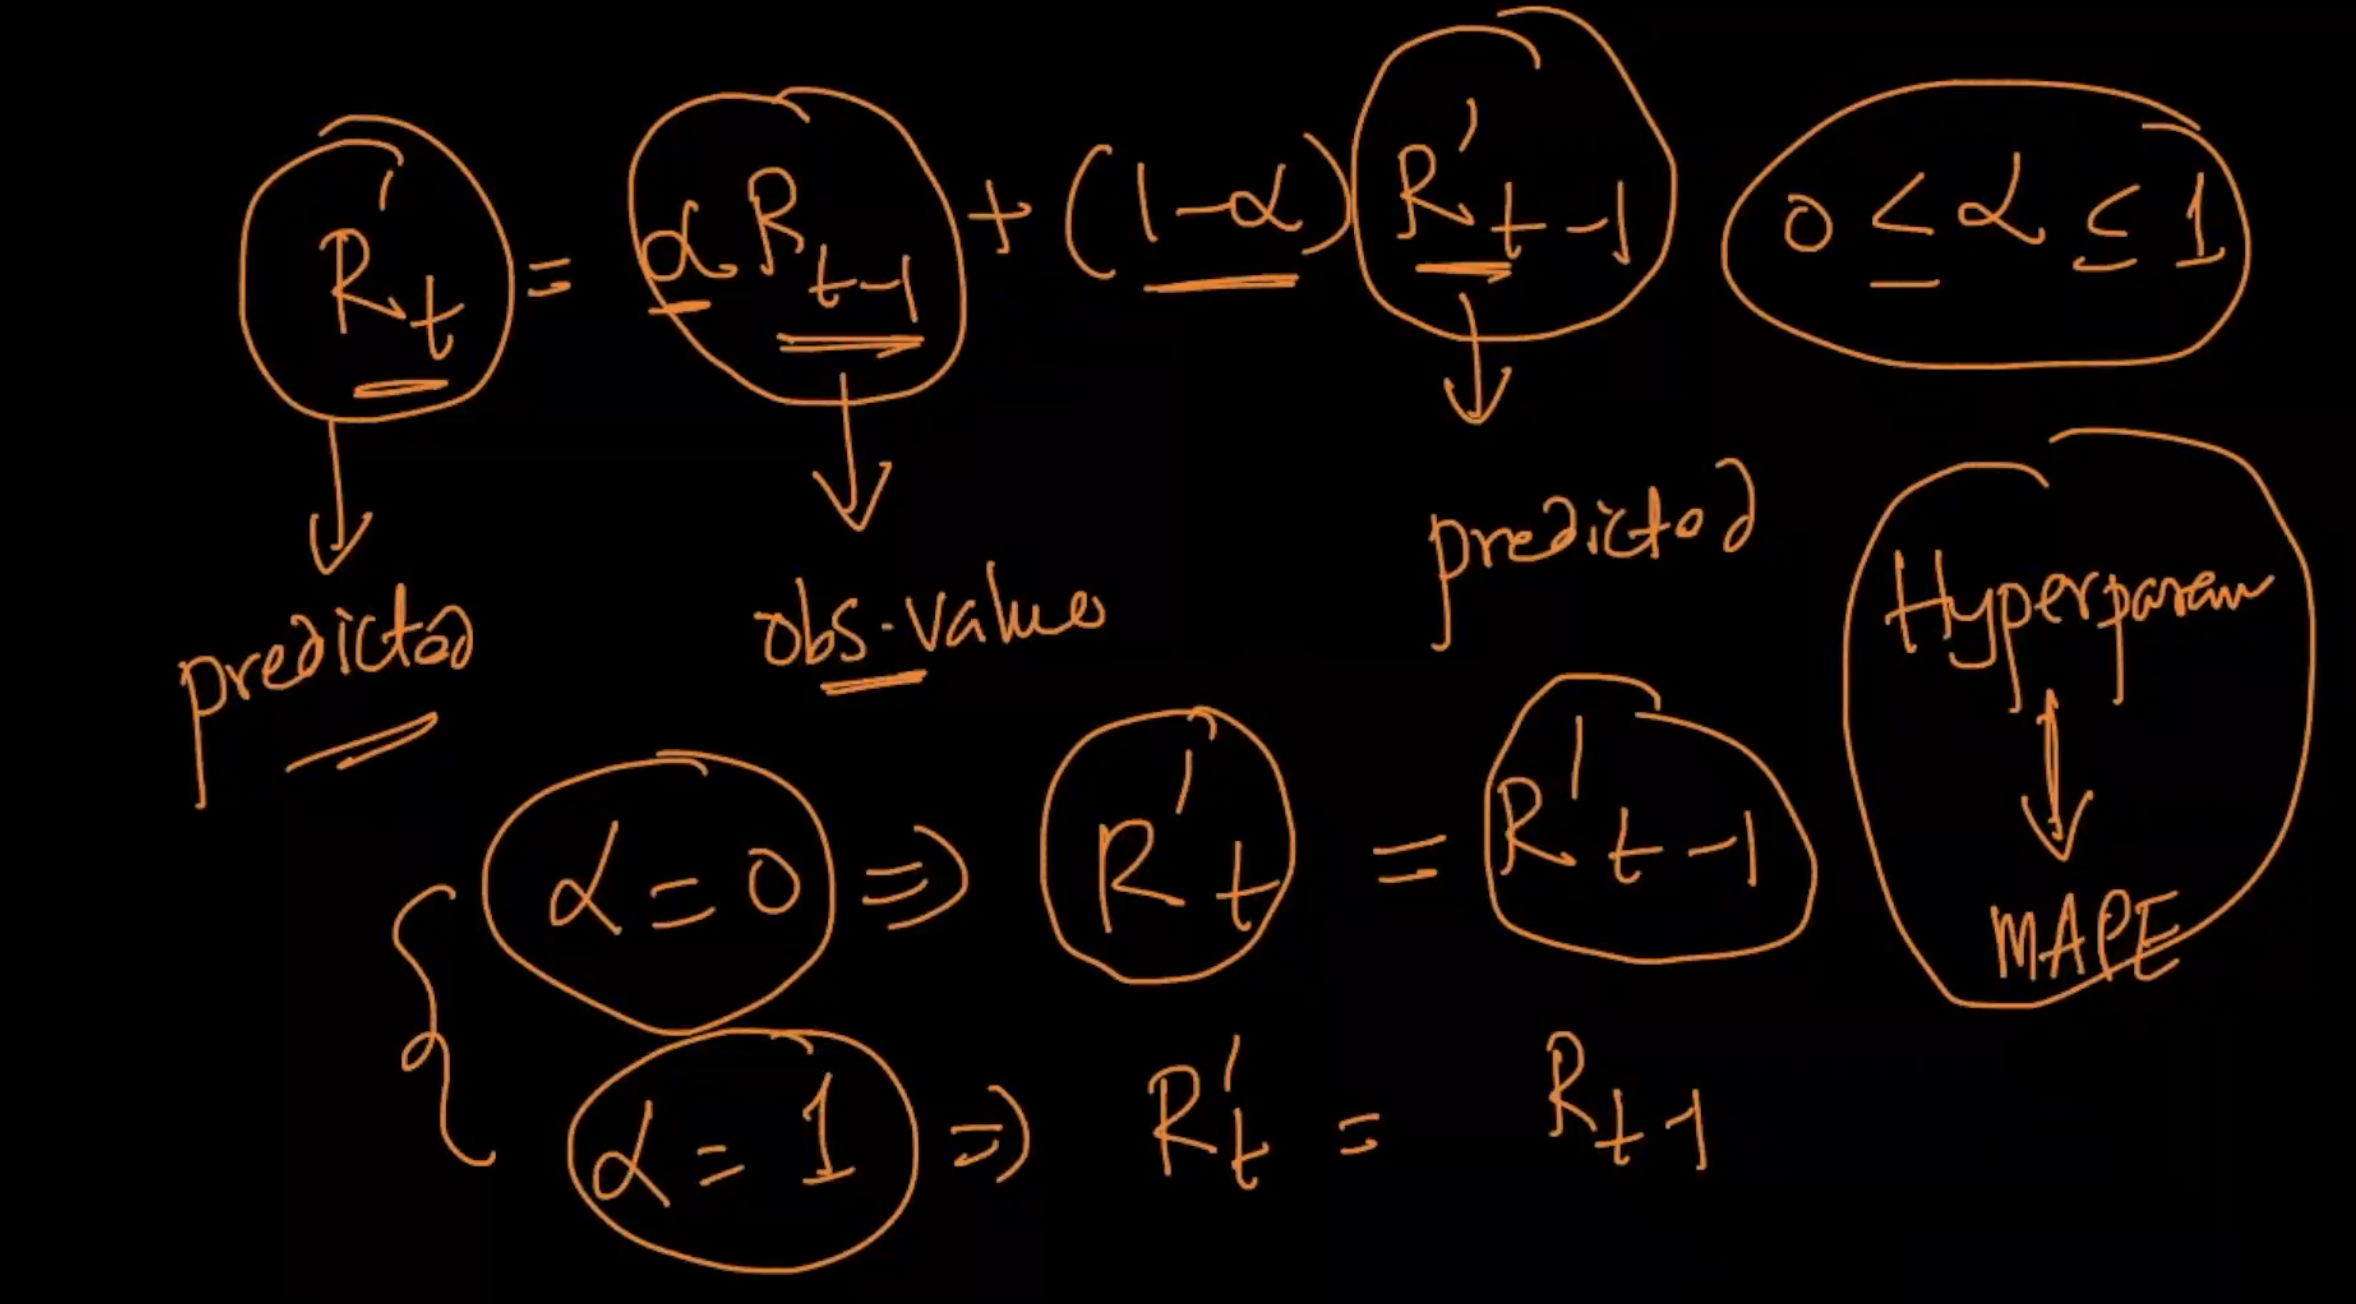 R't = αRt-1 + (1-α)R't-1 0 ≤ α ≤ 1
predicted obs. value predicted Hyperparam
MAPE
α = 0 ⇒ R't = R't-1
α = 1 ⇒ R't = Rt-1